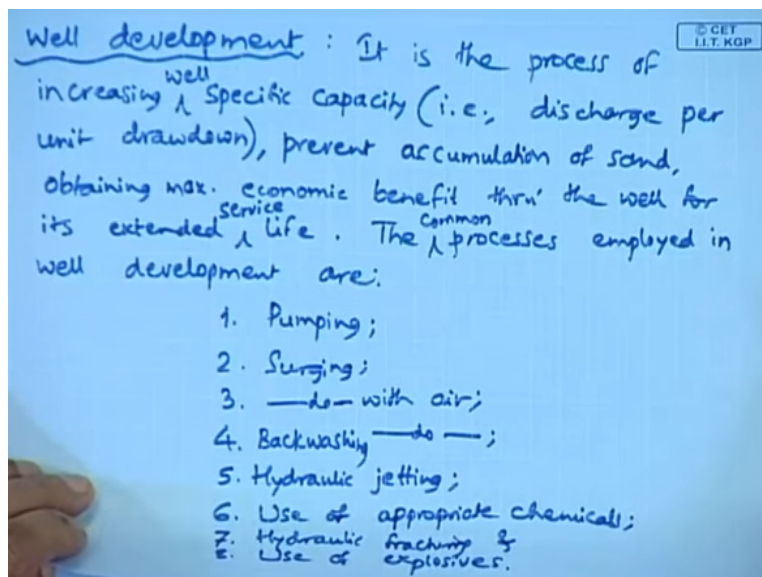 Well development : It is the process of
© CET
I.I.T. KGP
increasing well specific capacity (i.e., discharge per
unit drawdown), prevent accumulation of sand,
obtaining max. economic benefit thru' the well for
its extended service life. The common processes employed in
well development are:
1. Pumping;
2. Surging;
3. —do— with air;
4. Backwashing —do— ;
5. Hydraulic jetting;
6. Use of appropriate chemicals;
7. Hydraulic fracturing &
8. Use of explosives.